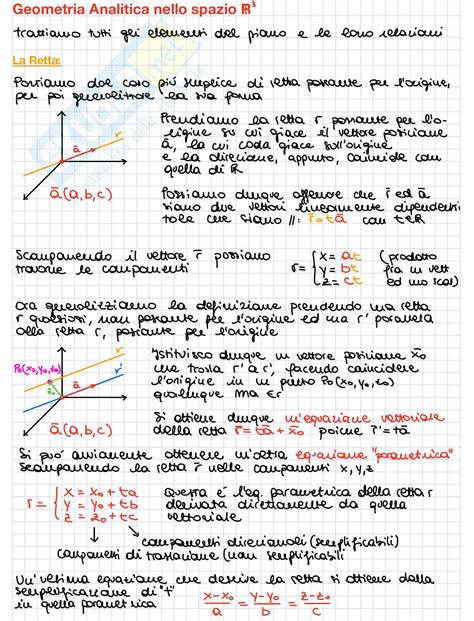 Geometria Analitica nello spazio ℝ³
Trattiamo tutti gli elementi del piano e le loro relazioni
La Retta:
Partiamo dal caso più semplice di retta passante per l'origine,
per poi generalizzare la sua forma
Prendiamo la retta r passante per l'o-
rigine su cui giace il vettore posizione
ā, la cui coda giace sull'origine
e la direzione, appunto, coincide con
quella di R
r
ā
ā(a,b,c)
Possiamo dunque affermare che r̄ ed ā
siano due vettori linearmente dipendenti
tale che siano //: r̄=tā con t∈R
Scomponendo il vettore r̄ possiamo
trovarne le componenti
r= { x = at
y = bt
z = ct
(prodotto
fra un vett
ed uno scal)
Ora generalizziamo la definizione prendendo una retta
r qualsiasi, non passante per l'origine ed una r' parallela
alla retta r, passante per l'origine
P₀(x₀,y₀,z₀)
r
r'
ā
x̄₀
ā(a,b,c)
Istituisco dunque un vettore posizione x̄₀
che trasla r' a r, facendo coincidere
l'origine in un punto P₀(x₀,y₀,z₀)
qualunque ma ∈r
Si ottiene dunque un'equazione vettoriale
della retta r̄=tā+x̄₀ poiché r̄'=tā
Si può ovviamente ottenere un'altra equazione "parametrica"
scomponendo la retta r̄ nelle componenti x,y,z
r= { x = x₀ + ta
y = y₀ + tb
z = z₀ + tc
Questa è l'eq. parametrica della retta r
derivata direttamente da quella
vettoriale
componenti direzionali (semplificabili)
componenti di traslazione (non semplificabili
Un'ultima equazione che descrive la retta si ottiene dalla
semplificazione di "t"
in quella parametrica
x-x₀/a = y-y₀/b = z-z₀/c